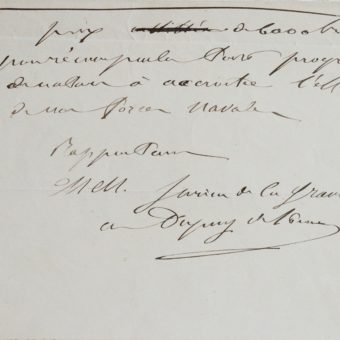 prix de 6000 fr
pour récompenser tout progr
de nature à accroître l'eff
de nos forces navales
Rapporteurs
MM. Jurien de la Grav
et Dupuy de Lôme